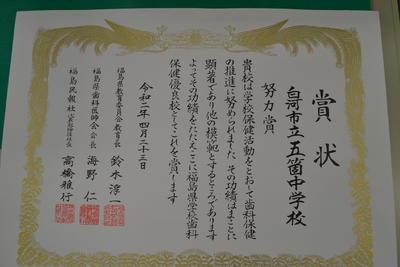 賞状
白河市立五箇中学校
努力賞
貴校は学校保健活動をとおして歯科保健
の推進に努められました その功績はまことに
顕著であり他の模範とするところであります
よってその功績をたたえここに福島県学校歯科
保健優良校としてこれを賞します
令和二年四月二十三日
福島県教育委員会教育長 鈴木淳一
福島県歯科医師会会長 海野仁
福島民報社代表取締役社長 高橋雅行